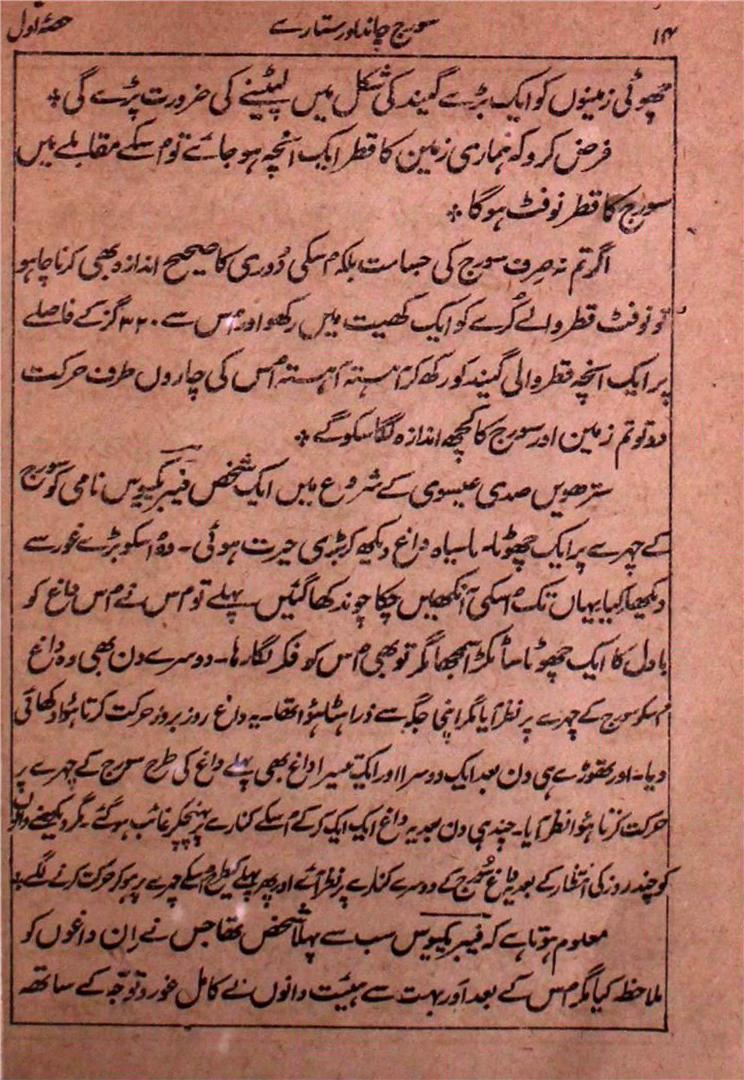 ۱۴ سورج چاند اور ستارے حصّہ اول
چھوٹی زمینوں کو ایک بڑے گیند کی شکل میں لپیٹنے کی ضرورت پڑے گی ٭
فرض کرو کہ ہماری زمین کا قطر ایک انچہ ہو جائے تو اُسکے مقابلے میں
سورج کا قطر نو فٹ ہوگا ٭
اگر تم نہ صِرف سورج کی جسامت بلکہ اُسکی دُوری کا صحیح اندازہ بھی کرنا چاہو
تو نو فٹ قطر والے کُرے کو ایک کھیت میں رکھو اور اُس سے ۳۲۰ گز کے فاصلے
پر ایک انچہ قطر والی گیند کو رکھ کر آہستہ آہستہ اُس کی چاروں طرف حرکت
دو تو تم زمین اور سورج کا کچھ اندازہ لگا سکو گے ٭
سترھویں صدی عیسوی کے شروع میں ایک شخص فیبریکیوس نامی کو سورج
کے چہرے پر ایک چھوٹا سا سیاہ داغ دیکھ کر بڑی حیرت ہوئی۔ وہ اسکو بڑے غور سے
دیکھا کیا یہاں تک اُسکی آنکھیں چکا چوند کھا گئیں پہلے تو اُس نے اُس داغ کو
بادل کا ایک چھوٹا سا ٹکڑا سمجھا مگر تو بھی اُس کو فکر لگا رہا۔ دوسرے دن بھی وہ داغ
اُسکو سورج کے چہرے پر نظر آیا مگر اپنی جگہ سے ذرا ہٹا ہؤا تھا۔ یہ داغ روز بروز حرکت کرتا ہؤا دکھائی
دیا۔ اور تھوڑے ہی دن بعد ایک دوسرا اور ایک تیسرا داغ بھی پہلے داغ کی طرح سورج کے چہرے پر
حرکت کرتا ہؤا نظر آیا۔ چند ہی دن بعد یہ داغ ایک ایک کر کے اُسکے کنارے پر پہنچکر غائب ہو گئے۔ مگر دیکھنے والوں
کو چند روز کی انتظار کے بعد یہ داغ سُورج کے دوسرے کنارے پر نظر آئے اور پھر پہلے کیطرح اُسکے چہرے پر ہو کر حرکت کرنے لگے ٭
معلوم ہوتا ہے کہ فیبریکیوس سب سے پہلا شخص تھا جس نے اِن داغوں کو
ملاحظہ کیا مگر اُس کے بعد اَور بہت سے ہیئت دانوں نے کامل غور و توجّہ کے ساتھ